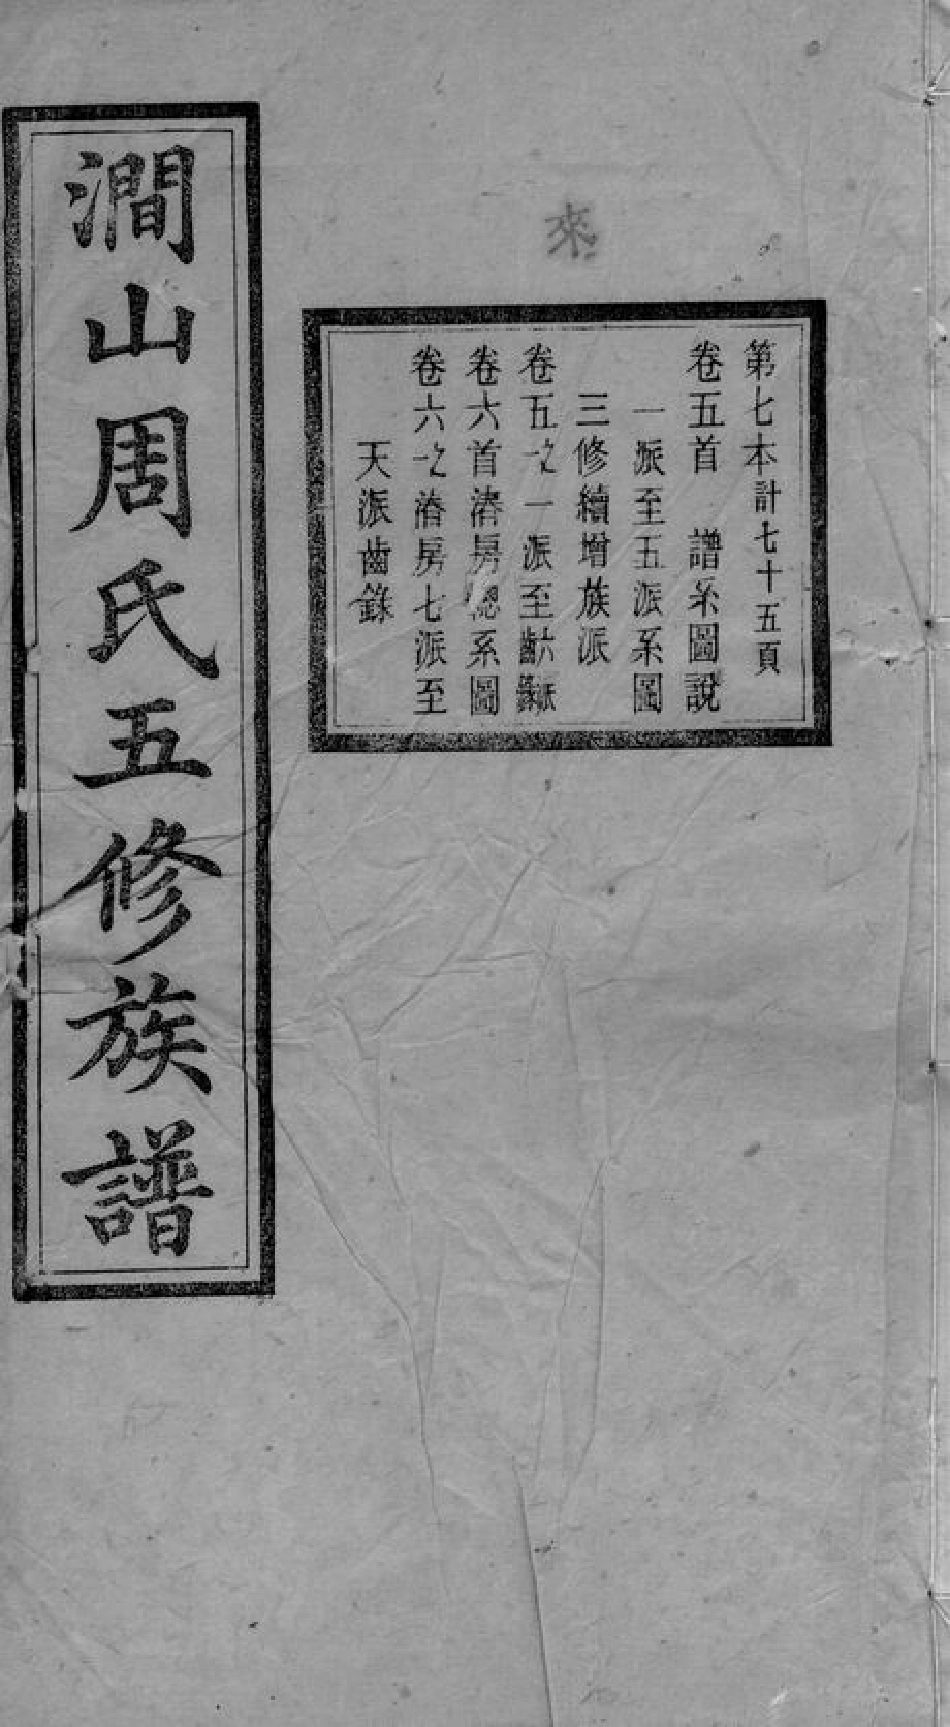 來
第七本計七十五頁
卷五首 譜系圖說
一派至五派系圖
三修續增族派
卷五之一派至六派齒錄
卷六首濬房總系圖
卷六之濬房七派至
天派齒錄
澗山周氏五修族譜